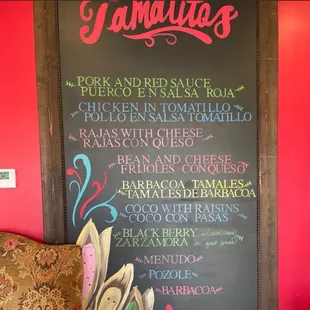 Tamalitos
PORK AND RED SAUCE
PUERCO EN SALSA ROJA
CHICKEN IN TOMATILLO
POLLO EN SALSA TOMATILLO
RAJAS WITH CHEESE
RAJAS CON QUESO
BEAN AND CHEESE
FRIJOLES CON QUESO
BARBACOA TAMALES
TAMALES DE BARBACOA
COCO WITH RAISINS
COCO CON PASAS
BLACK BERRY
ZARZAMORA
MENUDO
POZOLE
BARBACOA